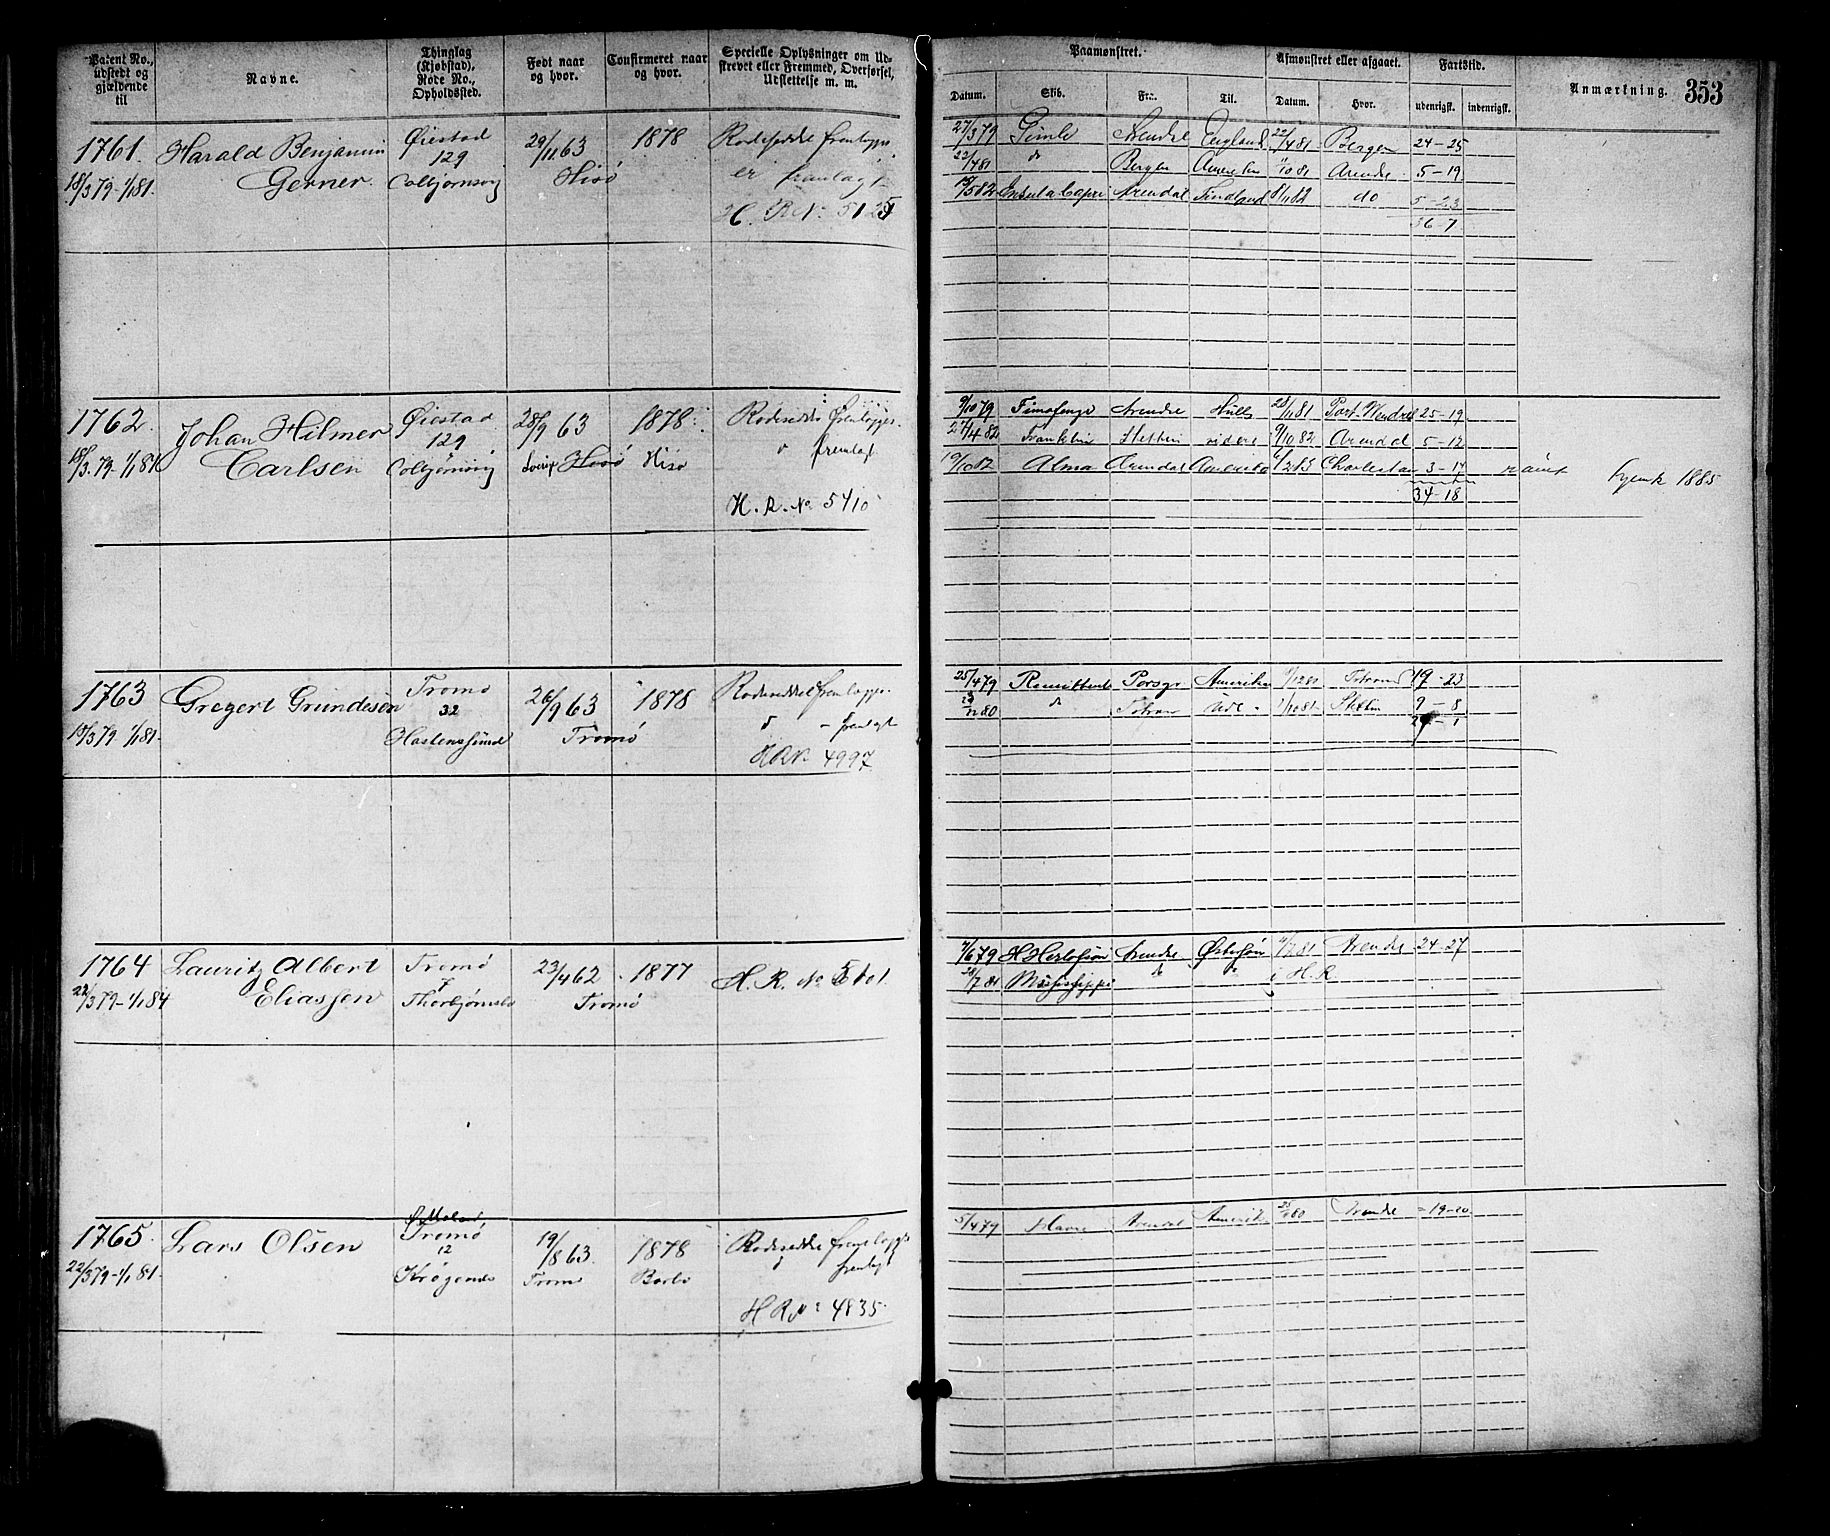 Patent No., udstedt og gjældende til
Navne.
Thinglag (Kjøbstad), Rode No., Opholdssted.
Født naar og hvor.
Confirmeret naar og hvor.
Specielle Oplysninger om Udskrevet eller Fremmed, Overførsel, Udslettelse m. m.
Paamønstret.
Datum.
Skib.
Fra.
Til.
Afmønstret eller afgaaet.
Datum.
Hvor.
Fartstid.
udenrigsk.
indenrigsk.
Anmærkning.
353
1761.
18/3 79-1/1 81.
Harald Benjamin
Gerner.
Øiestad
129
Colbjørnsvig
29/11 63
Hisø
1878
Rodeseddel fremlægges
er fremlagt
H. R No 5125
27/3 79 Gimle Arendal England 22/4 81 Bergen 24-25
23/4 81 do Bergen Amerika 11/10 81 Arendal 5-19
Insula Capri Arendal 8/11 82 do 5-23
36-7
1762.
18/3.79-1/1 81
Johan Hilmer
Carlsen
Øiestad
129
Colbjørnsvig
28/9 63
Hisø
1878
Hisø
Rodeseddel fremlægges.
fremlagt
H. R. No 5410
9/10 79 Arendal Hull 81 Port Vendres 25-19
27/4 82 Franklin Stettin videre 9/10 82 Arendal 5-12
Alma Arendal Amerika Charleston 3-17
34-18
hjemk 1885
1763
18/3 79-1/1 81.
Gregert Grundesen
Tromø
32
Hastensund
26/9 63
Tromø
1878
Rodeseddel fremlægges.
d - fremlagt
HRNo 4997
25/4 79 Remittent Porsgr Amerika 19-23
80 do Ude - 1/10 81 Stettin 9-8
1764
22/3 79-1/1 84
Lauritz Albert
Eliassen
Tromø
7
Thorbjørnsbo
23/4 62
Tromø
1877
H. R. No 5101
7/6 79 Arendal Østersøen Arendal 24-27
28/7 81 Mississippi do i H. R
1765.
22/3 79-1/1 81.
Lars Olsen
Tromø
12
Krøgenes
19/8 63.
Tromø
1878
Barbo
Rodeseddel fremlægges
fremlagt
H R No 4835
5/4 79 Arendal Amerika 80 Arendal 19-20